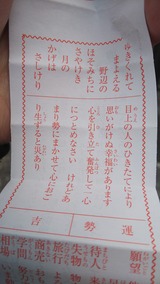 谷きくれて
まよえる
野辺の
ほそみちに
さやけき
月の
かげは
さしけり
目上の人のひきたてにより
思いがけぬ幸福があります
心を引き立て奮発して一心
につとめなさい けれどあ
まり勢にまかせて心におご
り生ずると災あり
運勢
吉
願望
待人
失物
旅行
商売
学問
相場